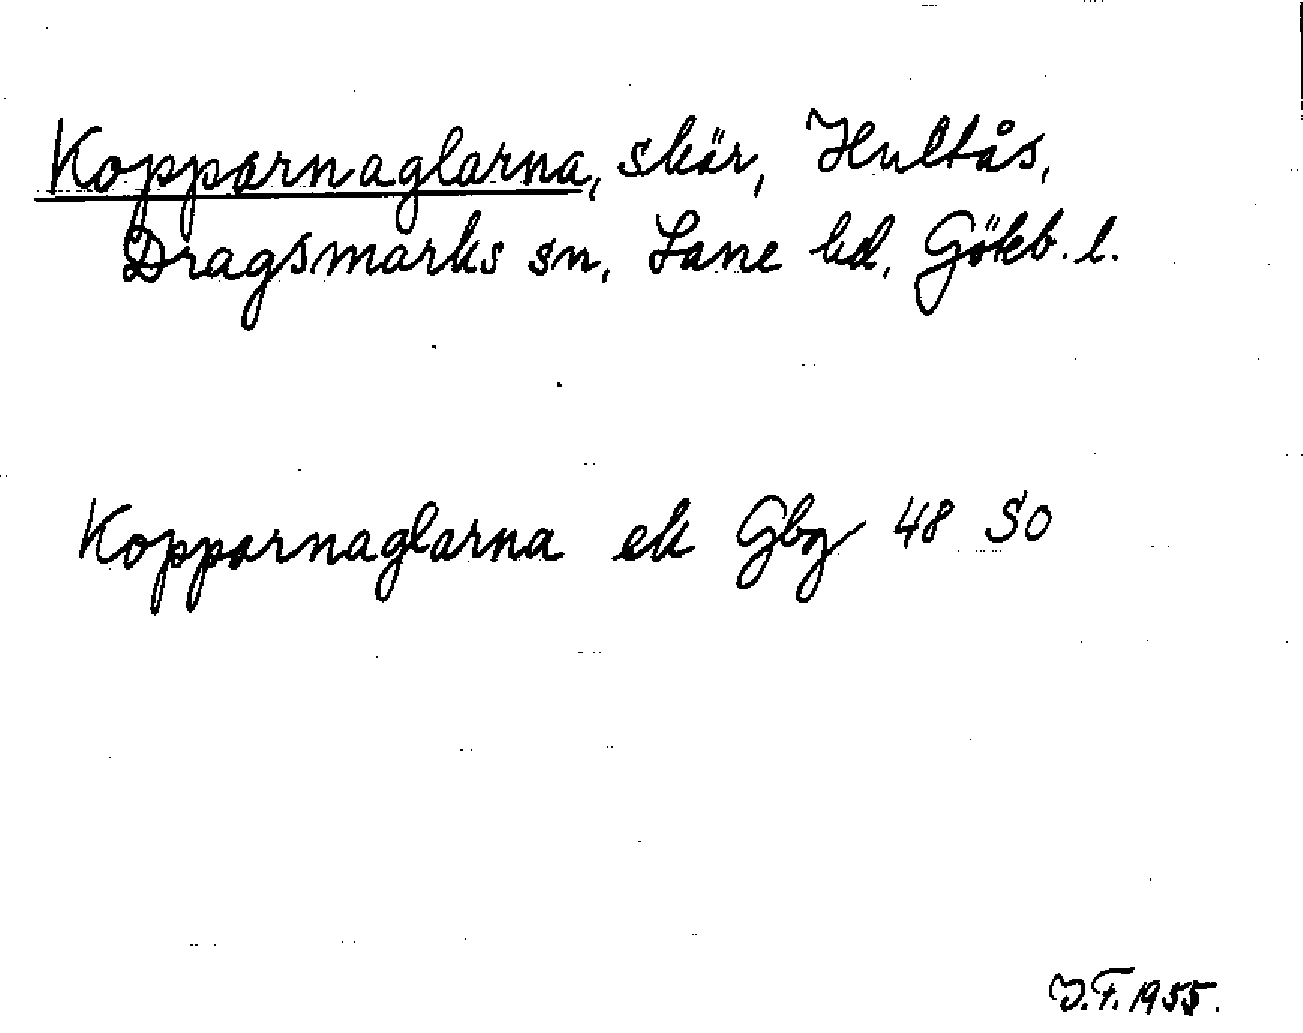 Kopparnaglarna, skär, Hultås,
Dragsmarks sn, Lane hd, Göteb. l.
Kopparnaglarna ek Gbg 48 SO
I.F. 1955.